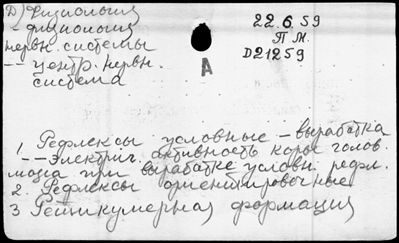 Д) Физиология
- физиология
нервн. системы
-- центр. нервн.
система
22.6.59
П М.
D21259
А
1 Рефлексы условные - выработка
-- Электрич. активность коры голов.
мозга при выработке условн. рефл.
2. Рефлексы ориентировочные
3 Ретикулерная формация